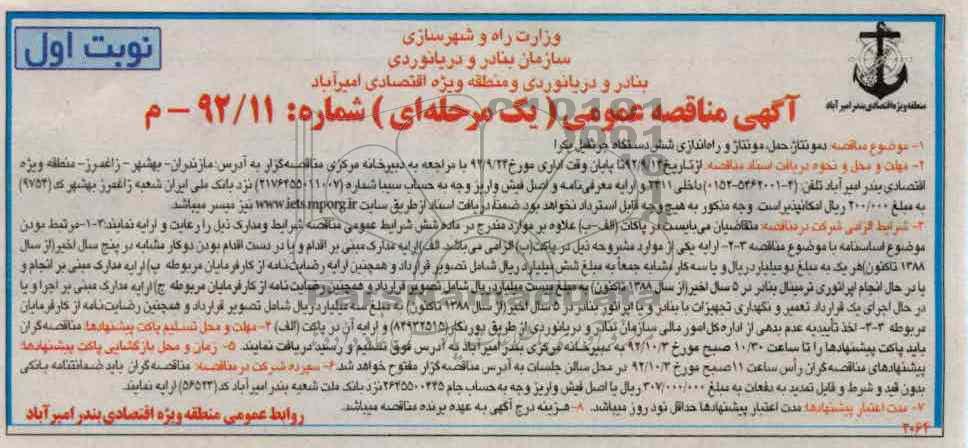 نوبت اول
وزارت راه و شهرسازی
سازمان بنادر و دریانوردی
بنادر و دریانوردی ومنطقه ویژه اقتصادی امیرآباد
منطقه ویژه اقتصادی بندر امیرآباد
آگهی مناقصه عمومی ( یک مرحله‌ای ) شماره: ۹۲/۱۱ – م
۱- موضوع مناقصه: دمونتاژ، حمل، مونتاژ و راه‌اندازی شش دستگاه جرثقیل
۲- مهلت و محل و نحوه دریافت اسناد مناقصه: از تاریخ تا پایان وقت اداری مورخ ۹۲/۹/۲۳ با مراجعه به دبیرخانه مرکزی مناقصه‌گزار به آدرس: مازندران- بهشهر - زاغمرز- منطقه ویژه
اقتصادی بندر امیر آباد تلفن: (۴-۰۱۵۲-۵۴۶۲۰۰۱) داخلی ۲۳۱۱ و ارایه معرفی‌نامه و اصل فیش واریز وجه به حساب سیبا شماره (۲۱۷۶۴۵۵۰۱۱۰۰۷) نزد بانک ملی ایران شعبه زاغمرز بهشهر کد (۹۷۵۳)
به مبلغ ۲۰۰/۰۰۰ ریال امکانپذیر است. وجه مذکور به هیچ وجه قابل استرداد نخواهد بود. ضمنا دریافت اسناد از طریق سایت www.iets.mporg.ir نیز میسر میباشد.
۳- شرایط الزامی شرکت در مناقصه: متقاضیان می‌بایست در پاکات (الف-ب) علاوه بر موارد مندرج در ماده شش شرایط عمومی مناقصه شرایط و مدارک ذیل را رعایت و ارایه نمایند: ۳-۱- مرتبط بودن
موضوع اساسنامه با موضوع مناقصه ۳-۲- ارایه یکی از موارد مشروحه ذیل در پاکت (ب) الزامی می‌باشد. الف) ارایه مدارک مبنی بر اقدام و یا در دست اقدام بودن دو کار مشابه در پنج سال اخیر (از سال
۱۳۸۸ تاکنون) هر یک به مبلغ دو میلیارد ریال و یا سه کار مشابه جمعاً به مبلغ شش میلیارد ریال شامل تصویر قرارداد و همچنین ارایه رضایت‌نامه از کارفرمایان مربوطه ب) ارایه مدارک مبنی بر انجام و
یا در حال انجام اپراتوری ترمینال بنادر در ۵ سال اخیر (از سال ۱۳۸۸ تاکنون) به مبلغ بیست میلیارد ریال شامل تصویر قرارداد و همچنین رضایت‌نامه از کارفرمایان مربوطه ج) ارایه مدارک مبنی بر اجرا و یا
در حال اجرای یک قرارداد تعمیر و نگهداری تجهیزات با بنادر و یا اپراتور بنادر در ۵ سال اخیر (از سال ۱۳۸۸ تاکنون) به مبلغ سه میلیارد ریال شامل تصویر قرارداد و همچنین رضایت‌نامه از کارفرمایان
مربوطه ۳-۳- اخذ تأییدیه عدم بدهی از اداره کل امور مالی سازمان بنادر و دریانوردی از طریق دورنگار (۸۴۹۳۲۵۱۵) و ارایه آن در پاکت (الف) ۴- مهلت و محل تسلیم پاکت پیشنهادها: مناقصه‌گران
باید پاکت پیشنهادها را تا ساعت ۱۰/۳۰ صبح مورخ ۹۲/۱۰/۳ به دبیرخانه مرکزی بندر امیرآباد به آدرس فوق تسلیم و رسید دریافت نمایند. ۵- زمان و محل بازگشایی پاکت پیشنهادها:
پیشنهادهای مناقصه‌گران رأس ساعت ۱۱ صبح مورخ ۹۲/۱۰/۳ در محل سالن جلسات به آدرس مناقصه‌گزار مفتوح خواهد شد. ۶- سپرده شرکت در مناقصه: مناقصه‌گران باید ضمانتنامه بانکی
بدون قید و شرط و قابل تمدید به دفعات به مبلغ ۳۰۷/۰۰۰/۰۰۰ ریال یا اصل فیش واریز وجه به حساب جام ۲۶۴۵۵۰۰۴۴۵ نزد بانک ملت شعبه بندر امیر آباد کد (۵۶۵۲۳) ارایه نمایند.
۷- مدت اعتبار پیشنهادها: مدت اعتبار پیشنهادها حداقل نود روز میباشد. ۸- هزینه درج آگهی به عهده برنده مناقصه میباشد.
روابط عمومی منطقه ویژه اقتصادی بندر امیر آباد
۲۰۶۴